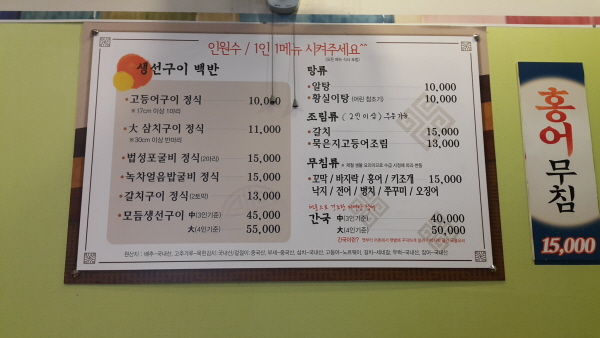 인원수 / 1인 1메뉴 시켜주세요^^
생선구이 백반
고등어구이 정식 10,000
※17cm 이상 1마리
大 삼치구이 정식 11,000
※30cm 이상 반마리
법성포굴비 정식(2마리) 15,000
녹차얼음밥굴비 정식 15,000
갈치구이 정식(2토막) 13,000
모듬생선구이 中(3인기준) 45,000
大(4인기준) 55,000
탕류
알탕 10,000
황실이탕 (어린 참조기) 10,000
조림류 (2인 이상) 주문 가능
갈치 15,000
묵은지고등어조림 13,000
무침류
꼬막 / 바지락 / 홍어 / 키조개 15,000
낙지 / 전어 / 병치 / 쭈꾸미 / 오징어
간국 中(3인기준) 40,000
大(4인기준) 50,000
간국이란?
홍어
무침
15,000